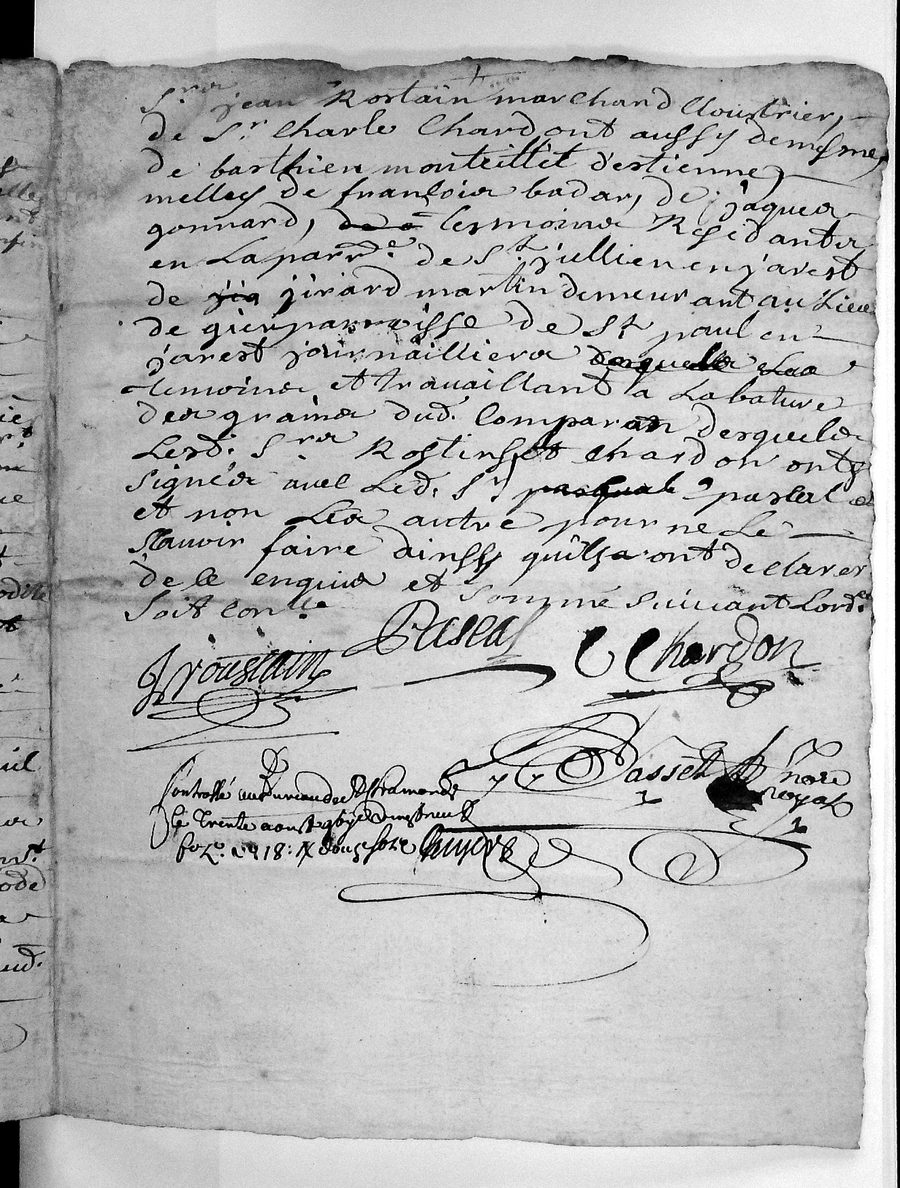 Srs jean Rostain marchand Cloustrier,
de Sr Charle Chardont aussy demesme,
de barthien monteillet d'estienne
melley de françois badar, de jaques
gonnard, tesmoins Residants
en La parre. de St jullien en jarest
de jirard martin demeurant au Lieu
de gier parroisse de St paul en
jarest journailliers
temoins et travaillant a La bature
des grains dud. Comparan desquels
Lesd. Srs Rostin et chardon ont
signés avec Led. Sr pascal et
et non Les autre pour ne Le
scauoir faire ainssy quils ont declarer
de ce enquis et sommé suivant Lord.ce
soit con.lle
J roustain Pascal C Chardon
Basset nore
royal
Controllé au Bureau de St Chamond
le trente aoust
fo. 18: douze sols